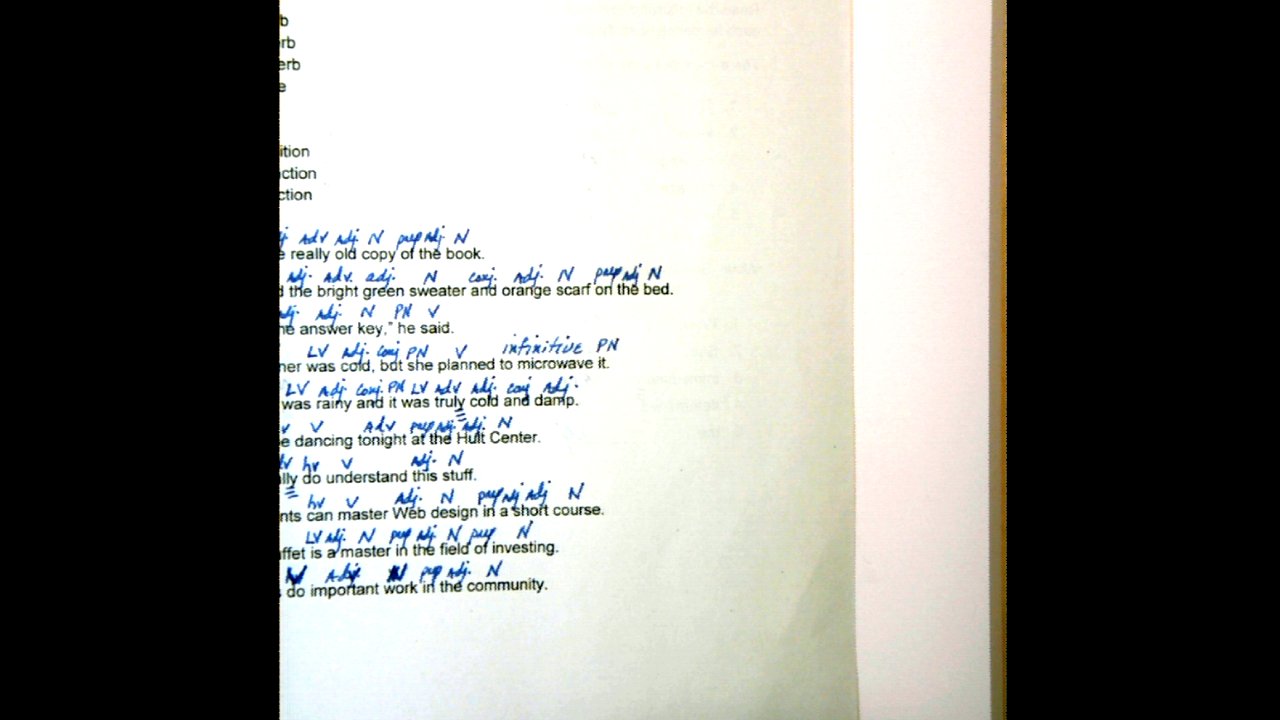 b
rb
erb
e
ition
ction
ction
Adv Adj. N prep Adj. N
e really old copy of the book.
Adj. Adv. adj. N conj. Adj. N prep Adj N
d the bright green sweater and orange scarf on the bed.
adj. Adj. N PN V
he answer key," he said.
LV Adj. conj PN V infinitive PN
ner was cold, but she planned to microwave it.
LV Adj conj. PN LV Adv Adj. conj Adj.
was rainy and it was truly cold and damp.
v V Adv prep Adj. Adj. N
e dancing tonight at the Hult Center.
hv V Adj. N
lly do understand this stuff.
hv V Adj. N prep Adj Adj N
nts can master Web design in a short course.
LV Adj. N prep Adj N prep N
ffet is a master in the field of investing.
V Adj. N prep Adj. N
do important work in the community.